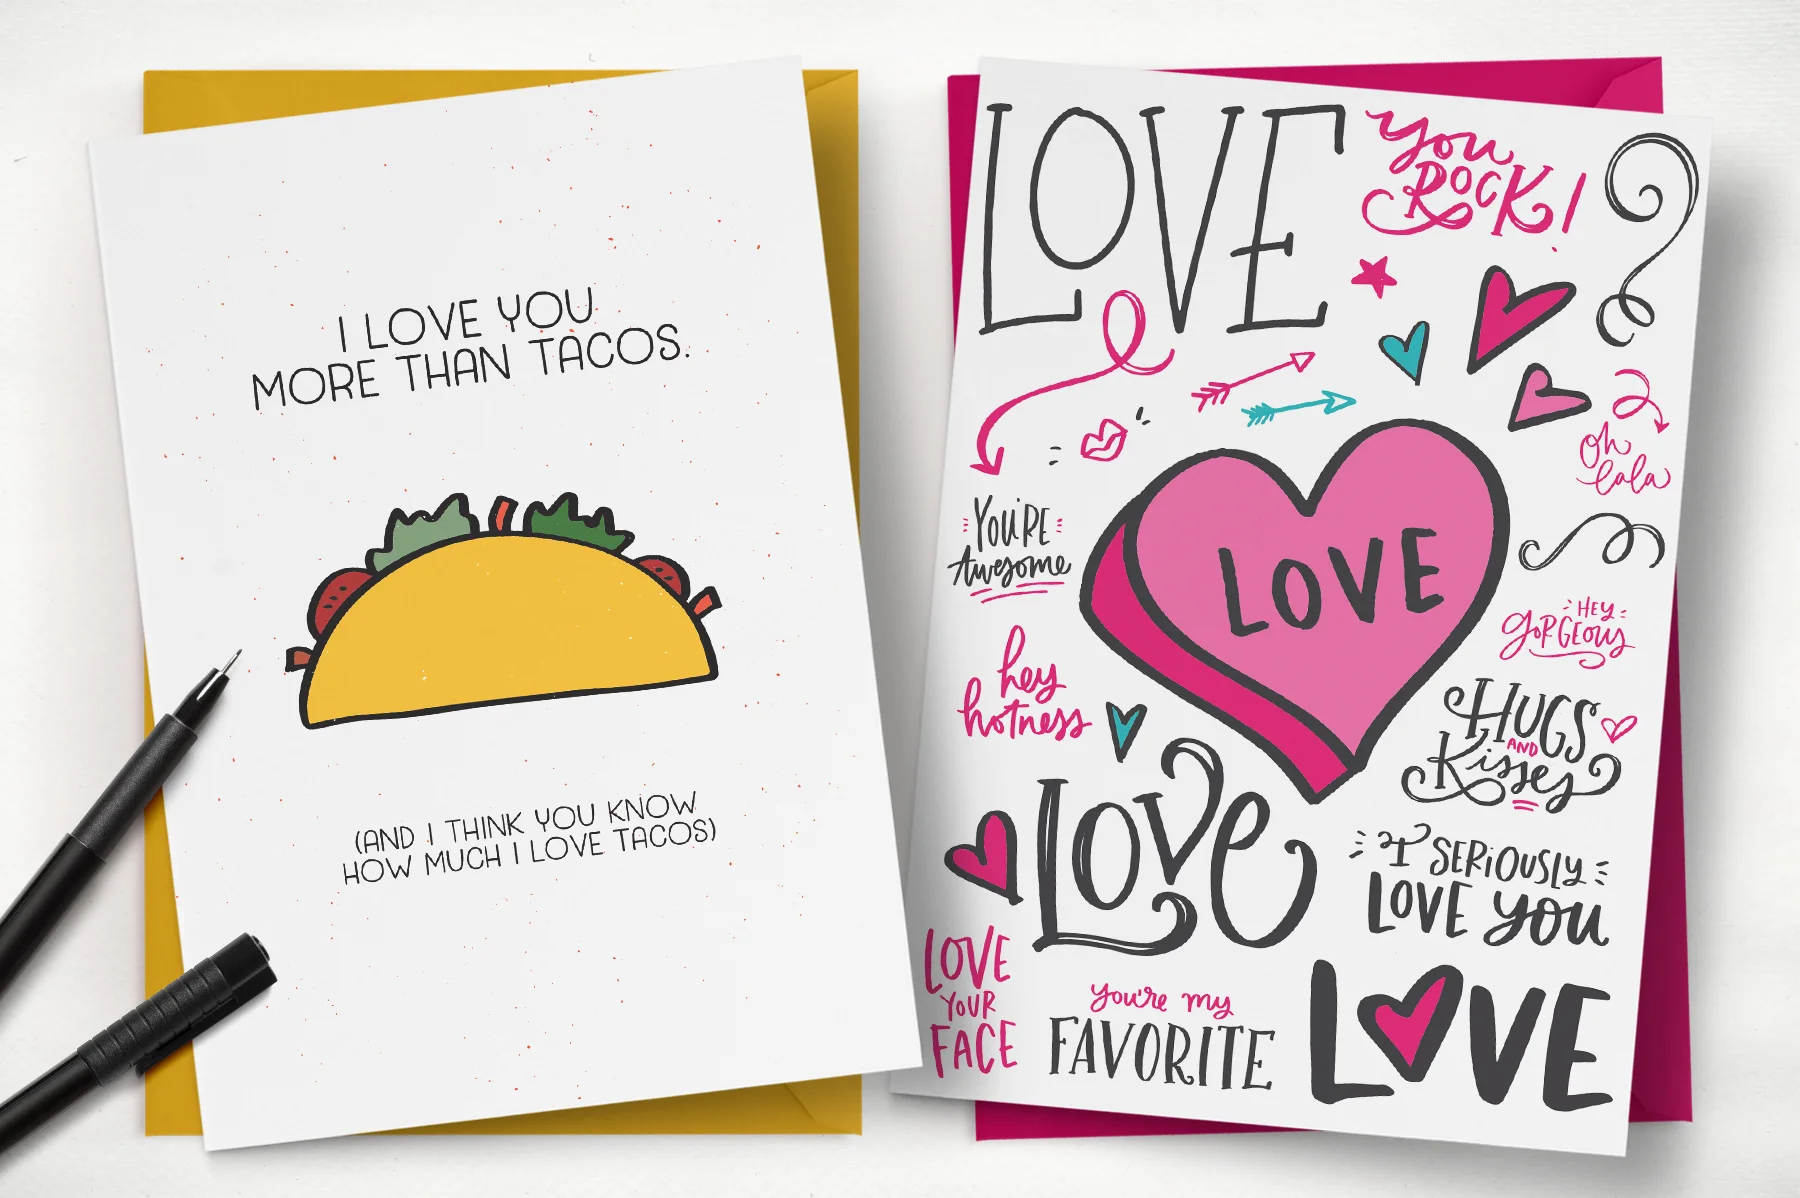 I LOVE YOU
MORE THAN TACOS.
(AND I THINK YOU KNOW
HOW MUCH I LOVE TACOS)
LOVE
You
ROCK!
oh
lala
YOU'RE
Awesome
LOVE
HEY
GORGEOUS
hey
hotness
HUGS
AND
Kisses
LOVE
I SERIOUSLY
LOVE YOU
LOVE
YOUR
FACE
you're my
FAVORITE
LOVE